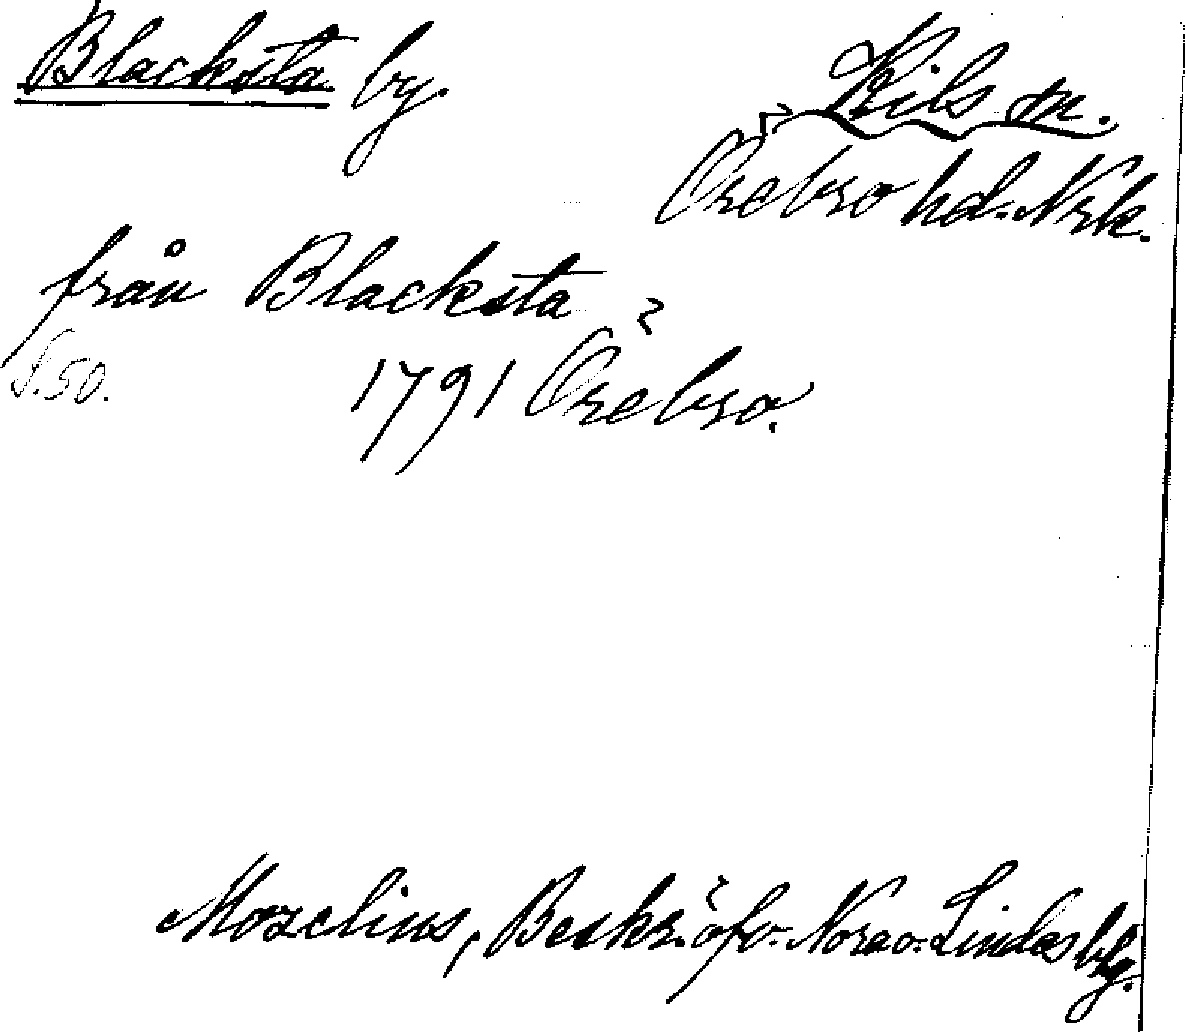 Blacksta by.
Kils sn.
Örebro hd. Nrk.
från Blacksta
S. 50.
1791 Örebro.
Morelius, Beskr. öfv. Nora o. Lindesbg.